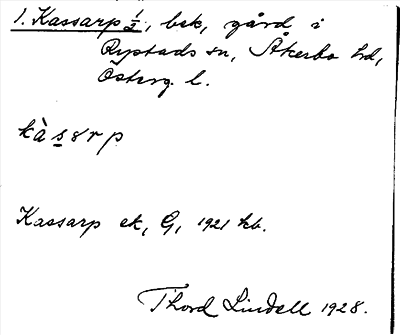 1. Kassarp 1/2, bsk, gård i
Rystads sn, Åkerbo hd,
Österg. l.
kàsarp
Kassarp ek, G, 1921 kb.
Thord Lindell 1928.